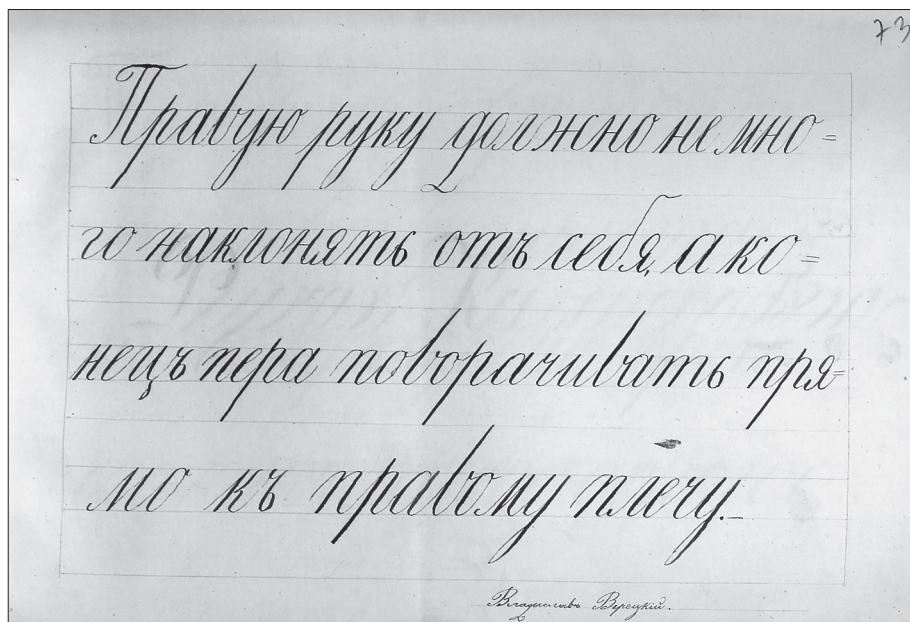 73
Правую руку должно немно=
го наклонять отъ себя, а ко=
нецъ пера поворачивать пря=
мо къ правому плечу.
Владиславъ Верецкій.